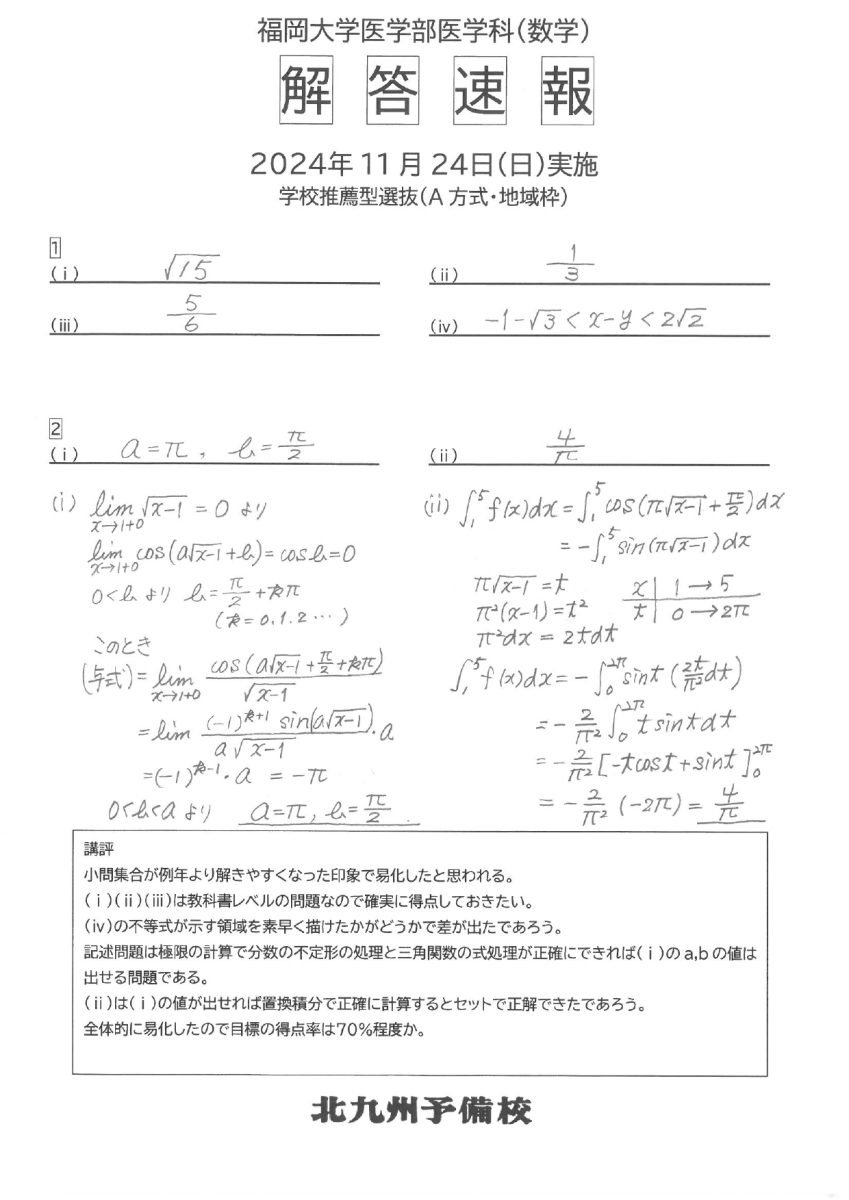 福岡大学医学部医学科(数学)
解答速報
2024年11月24日(日)実施
学校推薦型選抜(A方式・地域枠)
1
(ⅰ) √15
(ⅱ) 1/3
(ⅲ) 5/6
(ⅳ) -1-√3 < x-y < 2√2
2
(ⅰ) a=π, b=π/2
(ⅱ) 4/π
(i) lim_{x→1+0} √(x-1) = 0 より
lim_{x→1+0} cos(a√(x-1)+b) = cos b = 0
0<b より b = π/2 + kπ
(k=0.1.2…)
このとき
(与式) = lim_{x→1+0} cos(a√(x-1)+π/2+kπ)/√(x-1)
= lim (-1)^{k+1} sin(a√(x-1))/(a√(x-1))・a
= (-1)^{k-1}・a = -π
0<b<a より a=π, b=π/2
(ii) ∫₁⁵ f(x)dx = ∫₁⁵ cos(π√(x-1)+π/2)dx
= -∫₁⁵ sin(π√(x-1))dx
π√(x-1) = t
π²(x-1) = t²
π²dx = 2tdt
x | 1 → 5
t | 0 → 2π
∫₁⁵ f(x)dx = -∫₀^{2π} sin t (2t/π² dt)
= -2/π² ∫₀^{2π} t sin t dt
= -2/π² [-t cos t + sin t]₀^{2π}
= -2/π² (-2π) = 4/π
講評
小問集合が例年より解きやすくなった印象で易化したと思われる。
(ⅰ)(ⅱ)(ⅲ)は教科書レベルの問題なので確実に得点しておきたい。
(ⅳ)の不等式が示す領域を素早く描けたかがどうかで差が出たであろう。
記述問題は極限の計算で分数の不定形の処理と三角関数の式処理が正確にできれば(ⅰ)のa,bの値は
出せる問題である。
(ⅱ)は(ⅰ)の値が出せれば置換積分で正確に計算するとセットで正解できたであろう。
全体的に易化したので目標の得点率は70%程度か。
北九州予備校